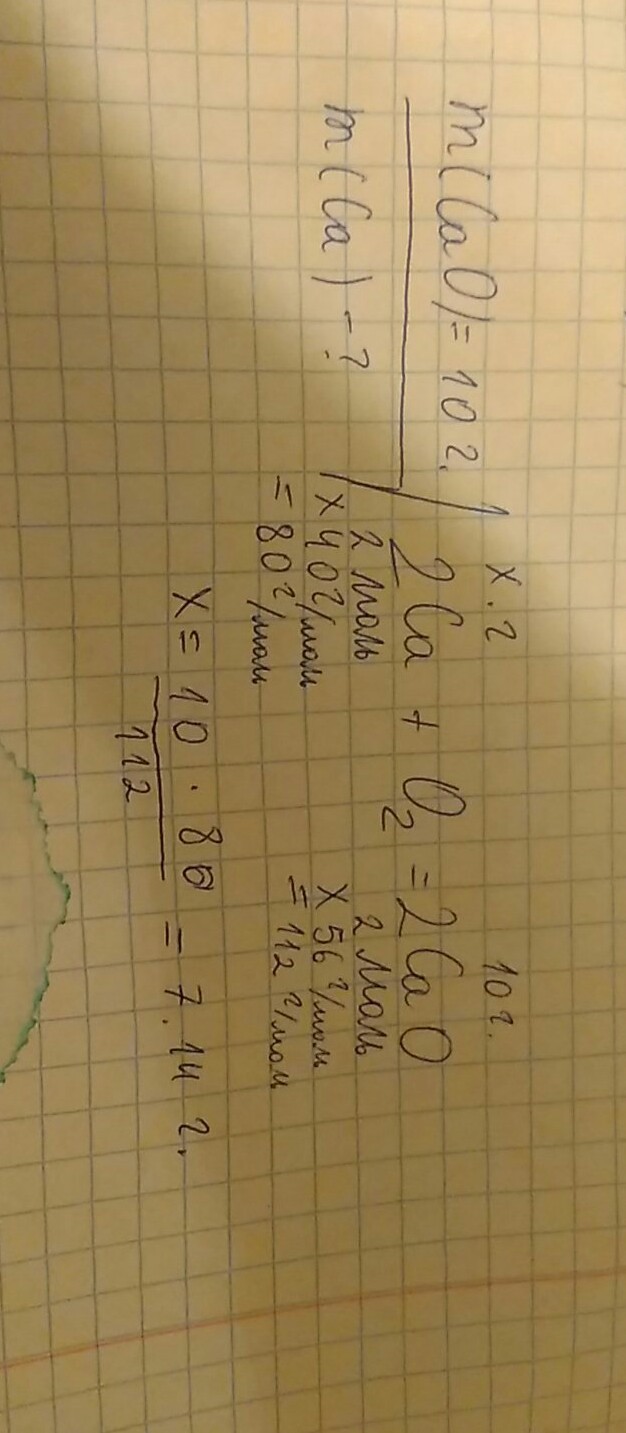 m(CaO)= 10 г.
m(Ca) - ?
x. г 10 г.
2Ca + O₂ = 2CaO
2 моль 2 моль
x 40 г/моль x 56 г/моль
= 80 г/моль = 112 г/моль
x = 10 · 80 / 112 = 7.14 г.